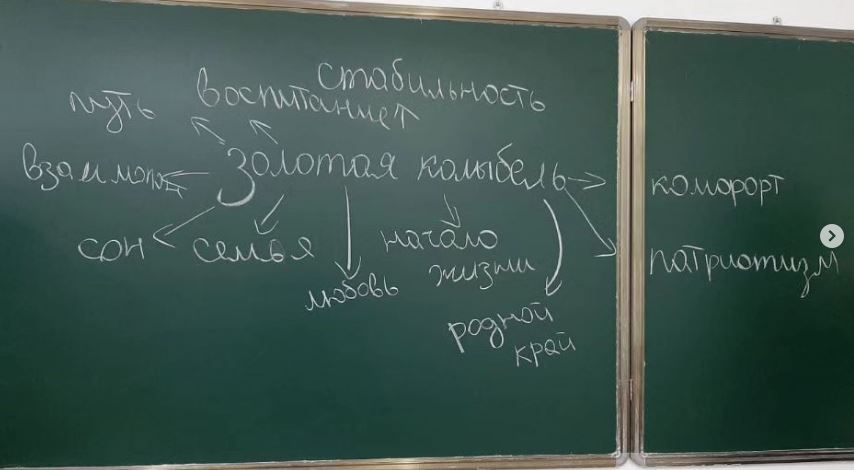 стабильность
путь воспитание
золотая колыбель
комфорт
сон семья начало
жизни
патриотизм
любовь
родной
край